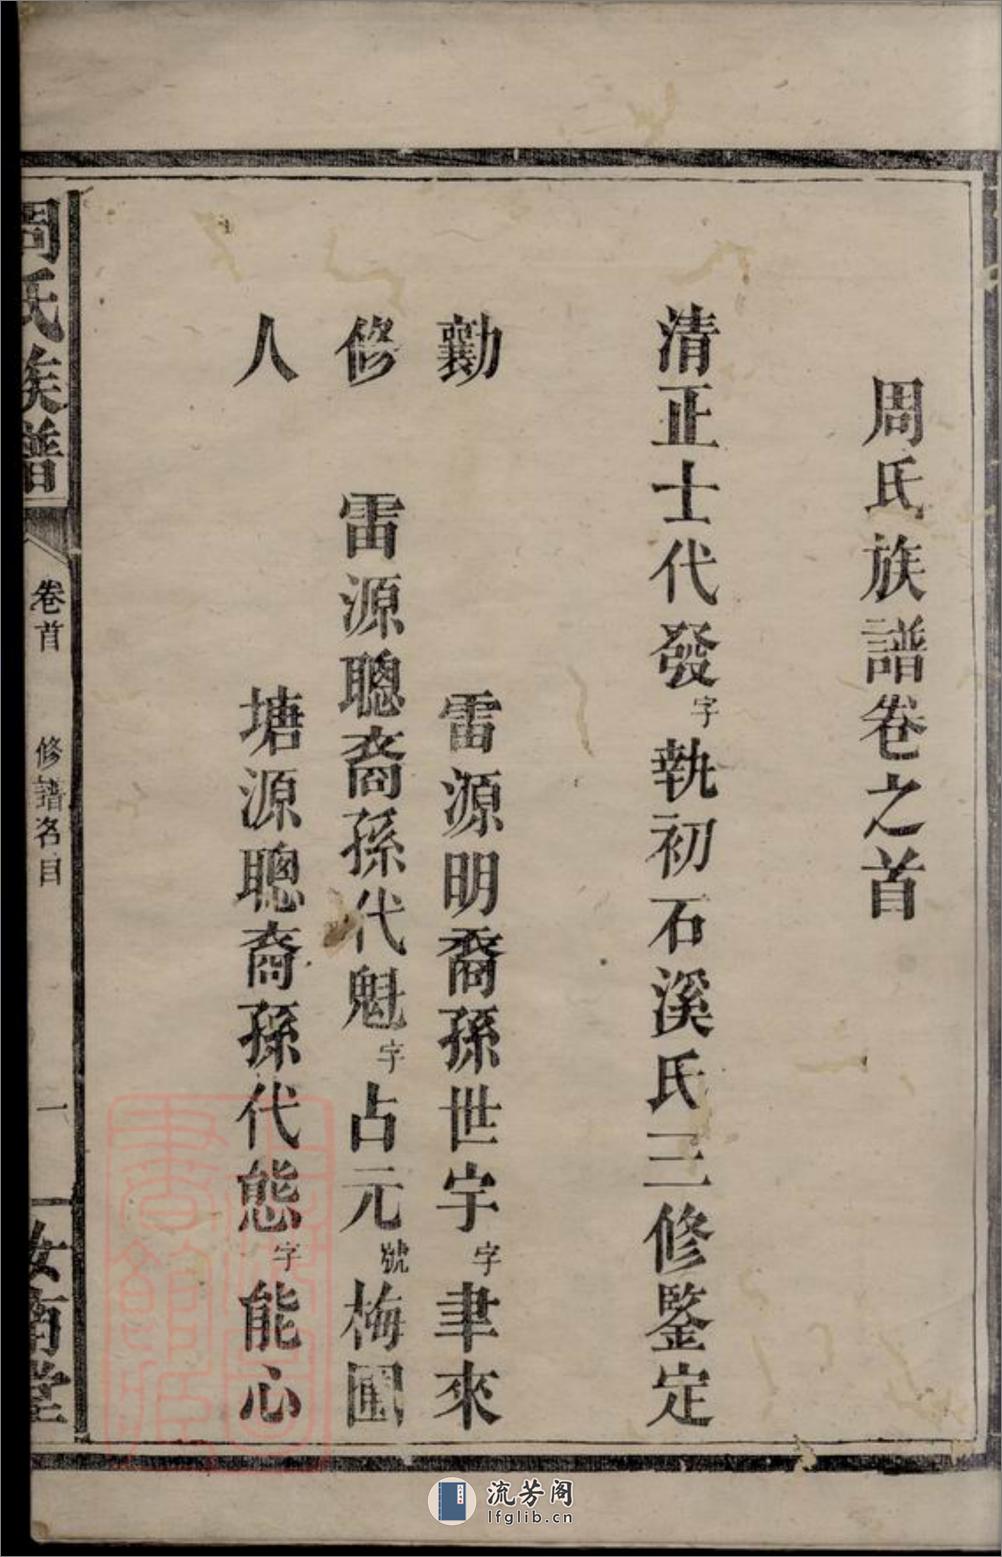 周氏族譜卷之首
清正士代發字執初石溪氏三修鑒定
勷 雷源明裔孫世宇字聿來
修 雷源聰裔孫代魁字占元號梅圃
人 塘源聰裔孫代態字能心
周氏族譜 卷首 修譜名目 一 汝南堂
流芳阁
lfglib.cn